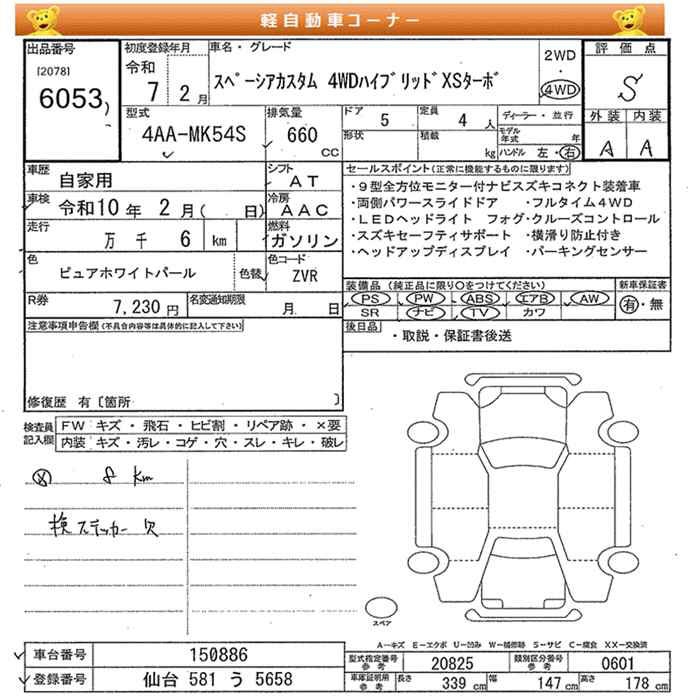 軽自動車コーナー
出品番号 [2078] 6053
初度登録年月 令和 7 2月
車名・グレード スペーシアカスタム 4WDハイブリッドXSターボ
2WD ・ 4WD
評価点 S
外装 内装
A A
型式 4AA-MK54S
排気量 660 CC
ドア 5
定員 4 人
形状
積載 kg
ディーラー・並行
モデル年式 年
ハンドル 左・右
車歴 自家用
シフト AT
車検 令和10年 2月( 日)
冷房 AAC
走行 万 千 6 km
燃料 ガソリン
色 ピュアホワイトパール 色替
色コード ZVR
R券 7,230円
名変通知期限 月 日
セールスポイント(正常に機能するものに限ります)
・9型全方位モニター付ナビスズキコネクト装着車
・両側パワースライドドア ・フルタイム4WD
・LEDヘッドライト フォグ・クルーズコントロール
・スズキセーフティサポート ・横滑り防止付き
・ヘッドアップディスプレイ ・パーキングセンサー
装備品(純正品に限り○をつけてください)
新車保証書
PS PW ABS エアB AW
有・無
SR ナビ TV カワ
後日品 ・取説・保証書後送
注意事項申告欄(不具合内容等は具体的に記入して下さい)
修復歴 有〔箇所 〕
検査員記入欄
FW キズ・飛石・ヒビ割・リペア跡・×要
内装 キズ・汚レ・コゲ・穴・スレ・キレ・破レ
8 Km
検ステッカー欠
スペア
A―キズ E―エクボ U―凹み W―補修跡 S―サビ C―腐食 XX―交換済
車台番号 150886
型式指定番号参考 20825
類別区分番号参考 0601
登録番号 仙台 581 う 5658
車庫証明用参考 長さ 339cm 幅 147cm 高さ 178cm